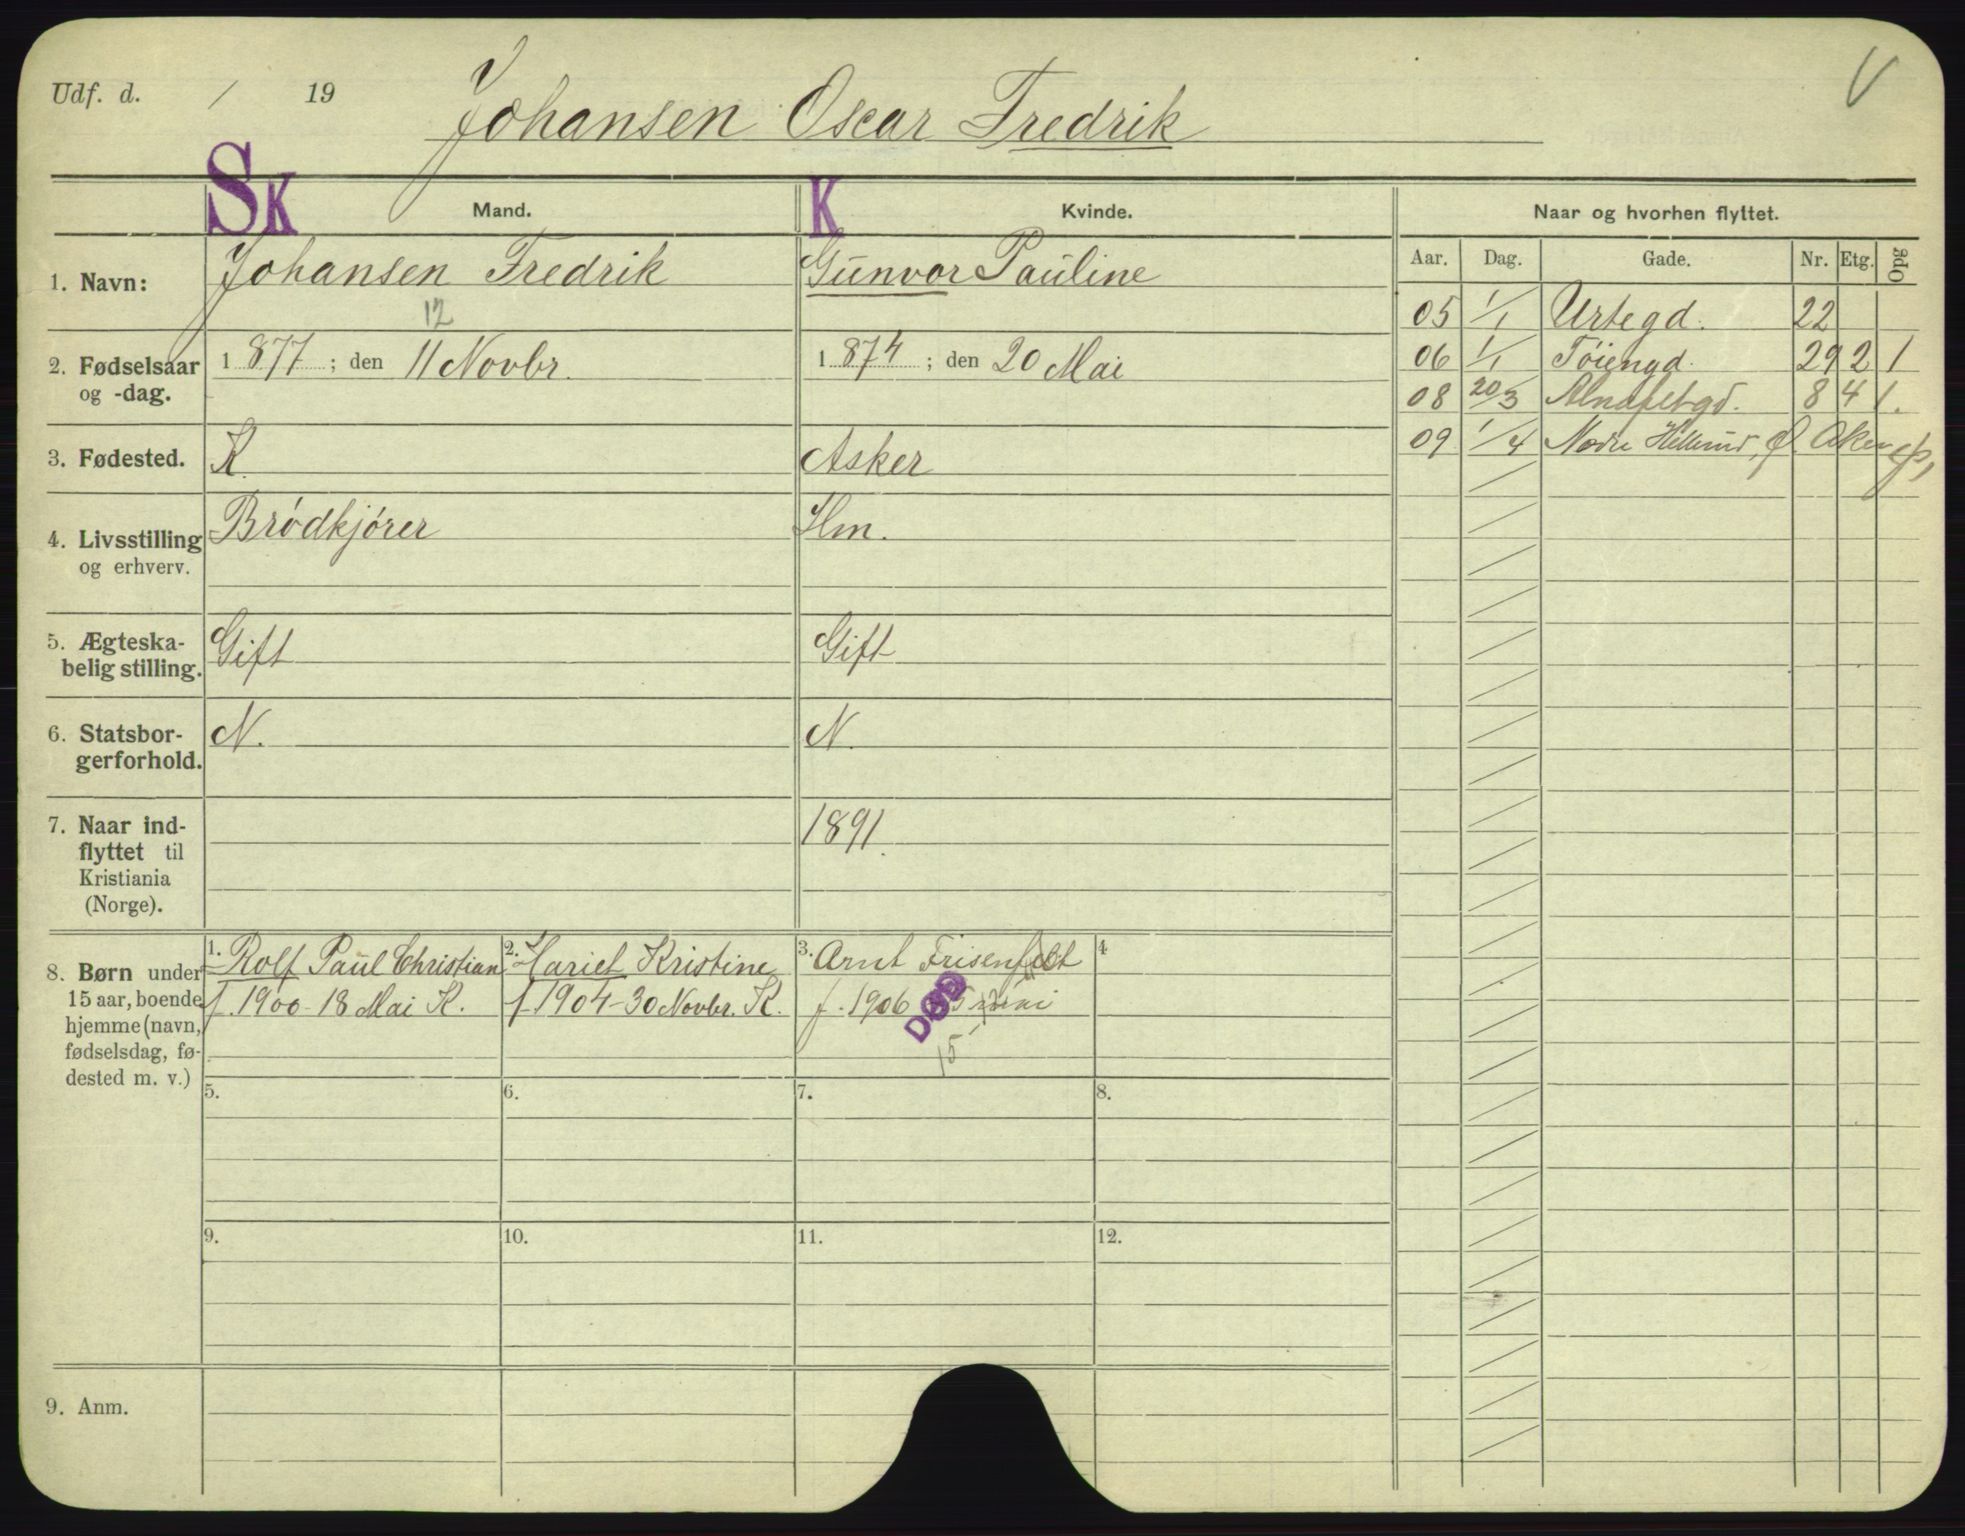 Udf. d. / 19 Johansen Oscar Fredrik V
SK Mand. K Kvinde. Naar og hvorhen flyttet.
Aar. Dag. Gade. Nr. Etg. Opg
1. Navn: Johansen Fredrik Gunvor Pauline
05 1/1 Urtegd. 22
12
2. Fødselsaar og -dag. 1877; den 11 Novbr. 1874; den 20 Mai
06 1/1 Töiengd. 29 2 1
08 20/3 Alnafetgd. 8 4 1.
3. Fødested. K. Asker
09 1/4 Nodre Hellerud, Ø. Aker
4. Livsstilling Brödkjörer Hm.
og erhverv.
5. Ægteska-
belig stilling. Gift Gift
6. Statsbor-
gerforhold. N. N.
7. Naar ind-
flyttet til
Kristiania
(Norge). 1891.
8. Børn under
15 aar, boende
hjemme (navn,
fødselsdag, fø-
dested m. v.)
1. Rolf Paul Christian
f. 1900 - 18 Mai K.
2. Hariet Kristine
f. 1904 - 30 Novbr. K.
3. Arnt Frisenfeldt
f. 1906
DØD
15
4
5. 6. 7. 8.
9. 10. 11. 12.
9. Anm.